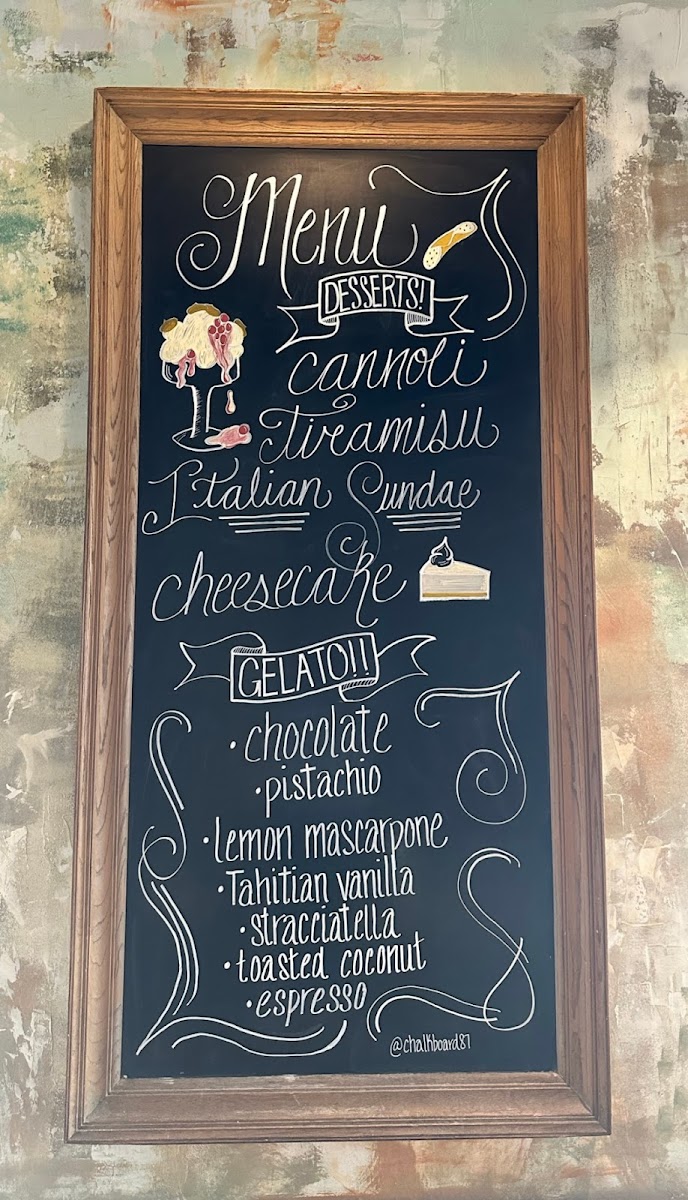 Menu
DESSERTS!
cannoli
Tiramisu
Italian Sundae
cheesecake
GELATO!!
• chocolate
• pistachio
• lemon mascarpone
• Tahitian vanilla
• stracciatella
• toasted coconut
• espresso
@chalkboard87